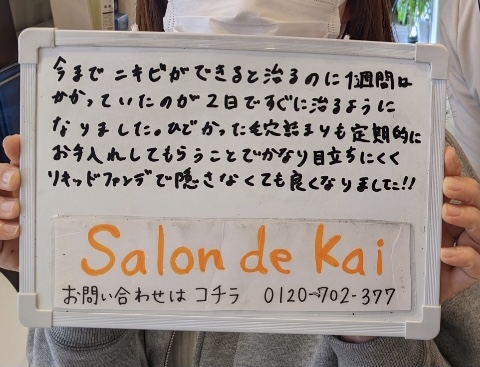 今までニキビができると治るのに1週間は
かかっていたのが2日ですぐに治るように
なりました。ひどかった毛穴詰まりも定期的に
お手入れしてもらうことでかなり目立ちにくく
リキッドファンデで隠さなくても良くなりました!!
Salon de Kai
お問い合わせは コチラ 0120-702-377